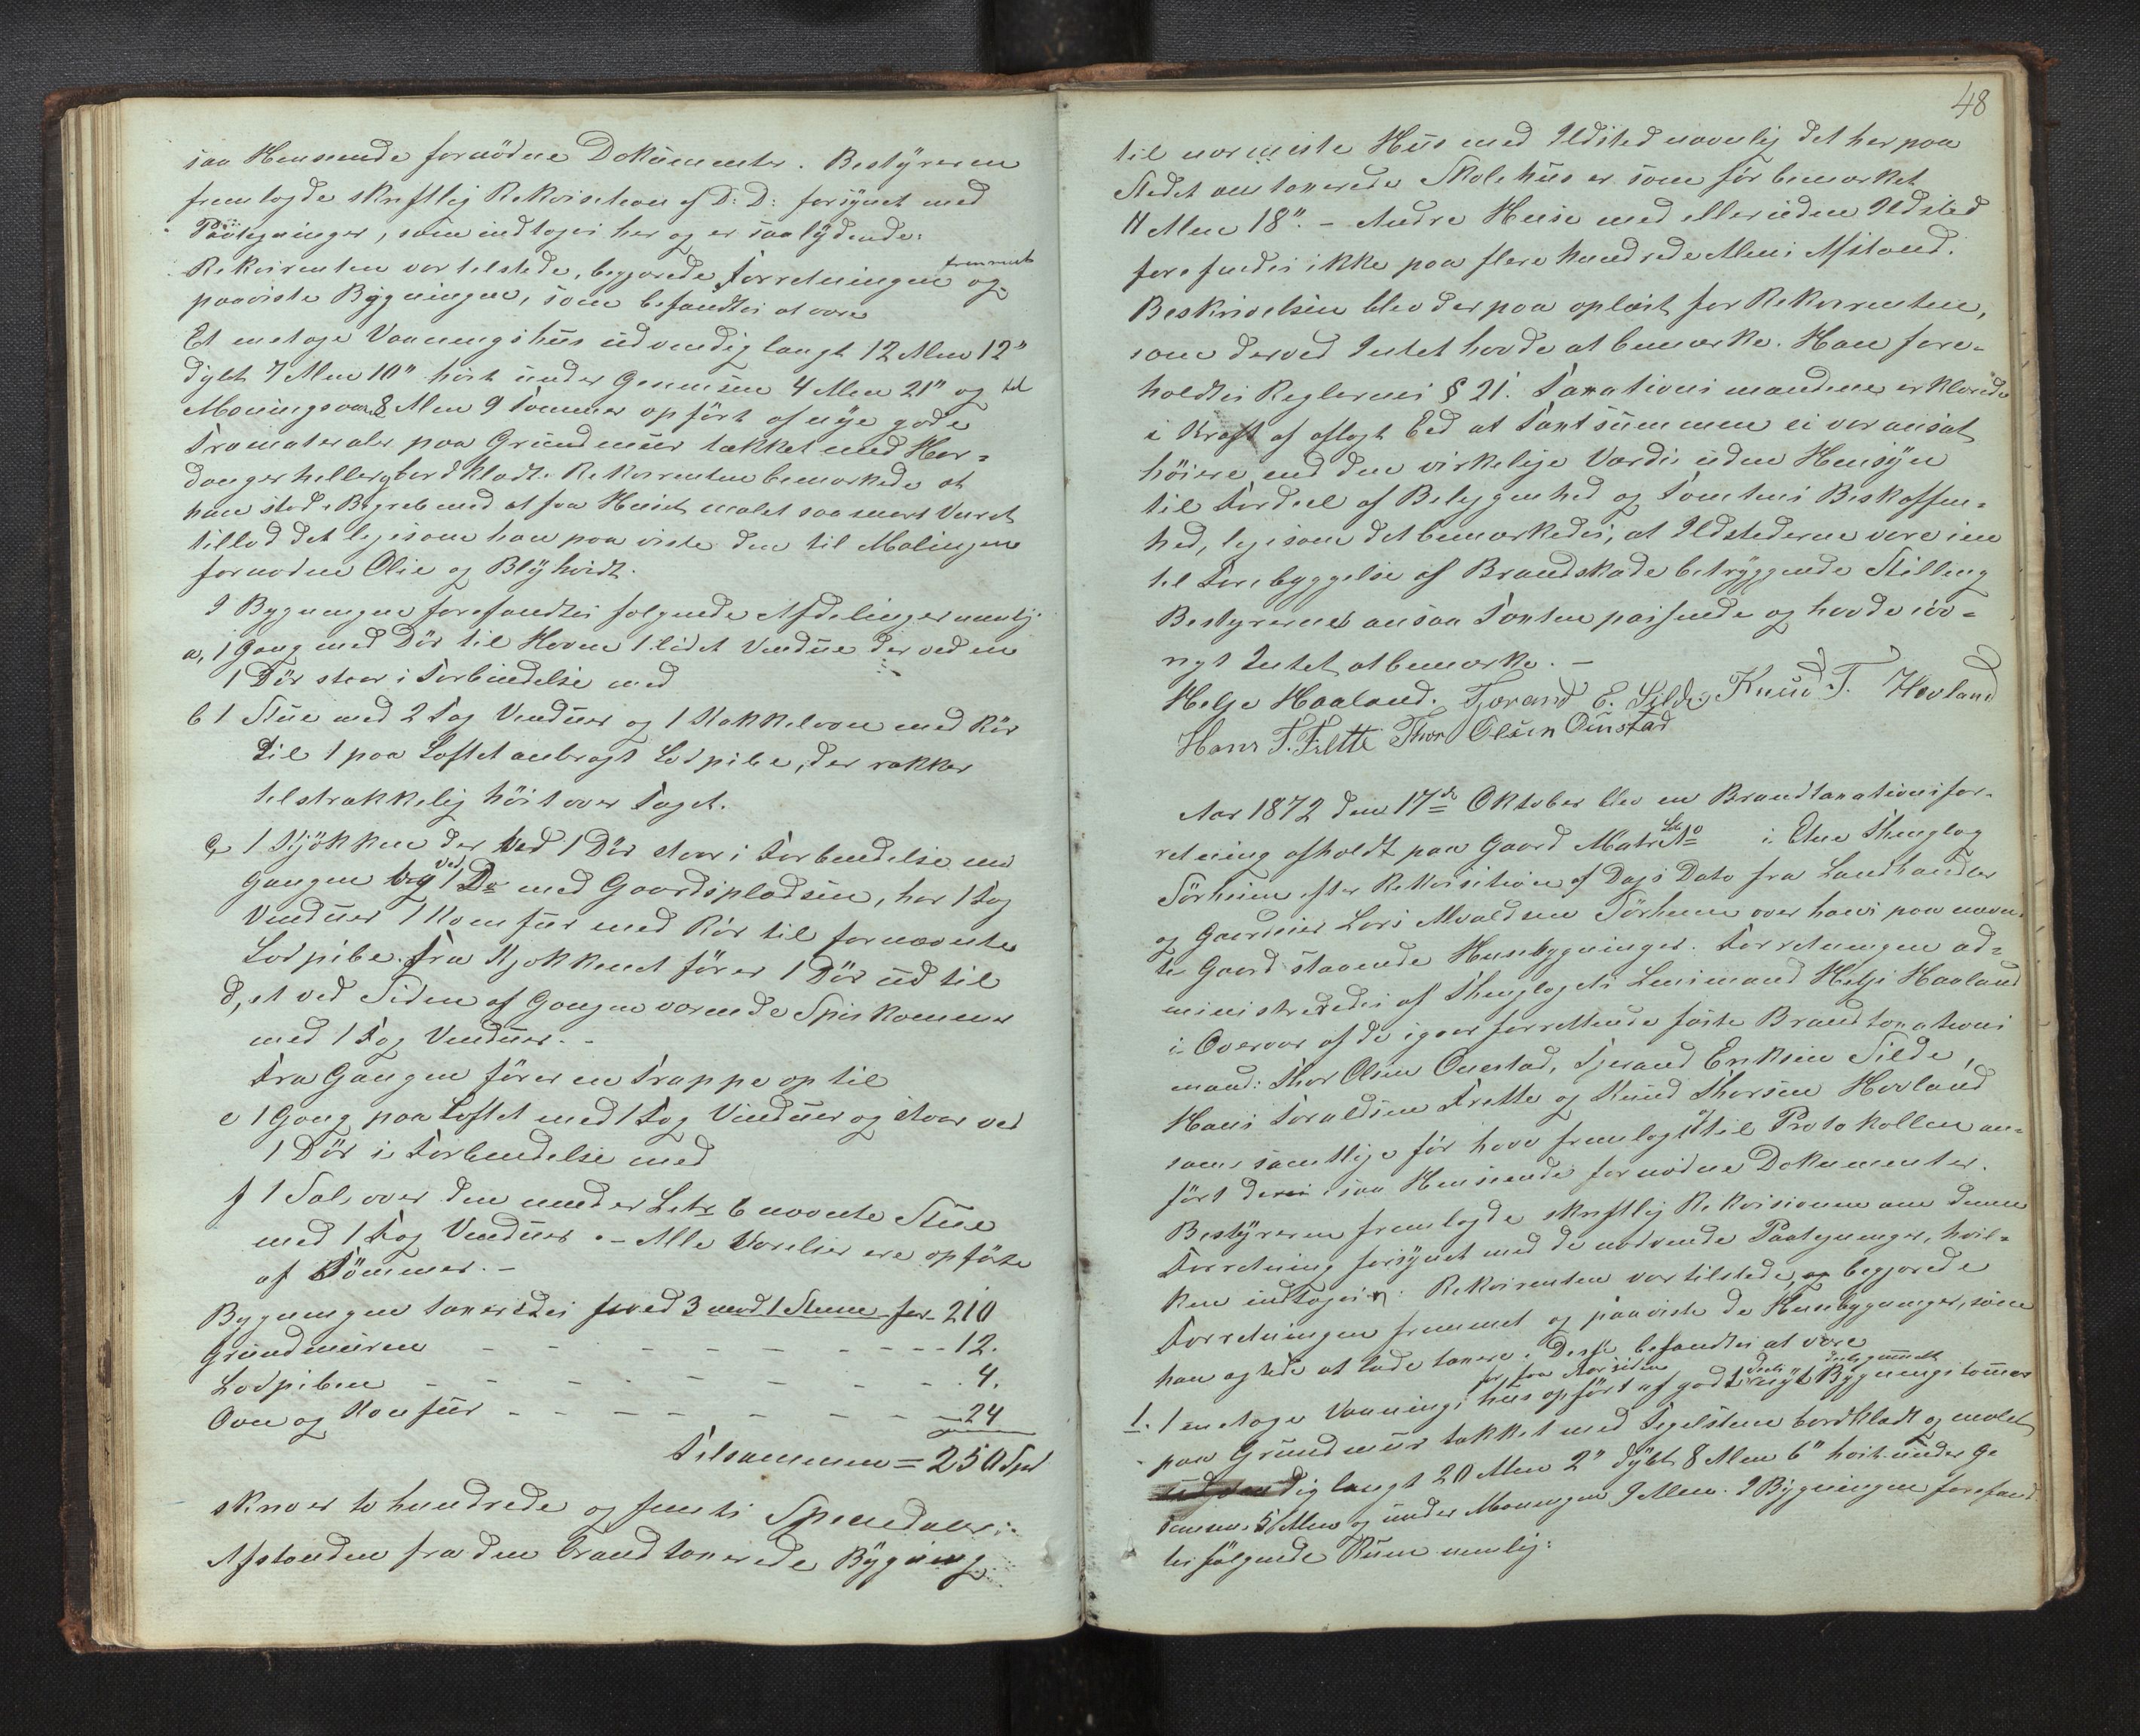 saa Henseende fornödne Dokumenter. Bestyreren
fremlagde skriftlig Rekvisition af D: D: forsynet med
Paategninger, som indtages her og er saalydende:
Rekvirenten var tilstede, begjærede Forretningen fremmet og
paaviste Bygningen, som befandtes at være
Et en etage Vaaningshus udvendig langt 12 Alen 12"
dybt 7 Alen 10" höit under Gesimsen 4 Alen 21" og til
Möningsaasen 8 Alen 9 Tommer opfört af nye gode
Træmaterialer paa Grundmuur tækket med Har=
dangerheller og bordklædt. Rekvirenten bemærkede at
han stod i Begreb med at faa Huset malet saa snart Veiret
tillod det ligesom han paaviste den til Malingen
fornödne Olie og Blyhvidt.
I Bygningen forefandtes følgende Afdelinger nemlig:
a, 1 Gang med Dör til Haven 1 lidet Vindue der ved en
1 Dör staar i Forbindelse med
b 1 Stue med 2 Fag Vinduer og 1 Kakkelovn med Rör
til 1 paa Loftet anbragt Lodpibe, der rækker
tilstrækkelig höit over Taget.
c, 1 Kjökken der ved 1 Dör staar i Forbindelse med
Gangen og ved 1 Do med Gaardspladsen, har 1 Fag
Vinduer 1 Komfur med Rör til fornævnte
Lodpibe. Fra Kjökkenet förer 1 Dör ud til
d, et ved Siden af Gangen værende Spiskammer
med 1 Fag Vinduer. -
Fra Gangen förer en Trappe op til
e 1 Gang paa Loftet med 1 Fag Vinduer og staar ved
1 Dör i Forbindelse med
f 1 Sal over den under Litr b nævnte Stue
med 1 Fag Vinduer. - Alle Værelser ere opförte
af Tömmer. -
Bygningen taxeredes for - 210
Grundmuren - - - - - - - - 12.
Lodpiben - - - - - - - - 4.
Ovn og Komfur - - - - - - - 24
Tilsammen = 250 Spd
skriver to hundrede og femti Speciedaler:
Afstanden fra den brandtaxerede Bygning
48
til nærmeste Hus med Ildsted navnlig det her paa
Stedet omtaxerede Skolehus er som för bemærket
11 Alen 18". - Andre Huse med eller uden Ildsted
forefindes ikke paa flere hundrede Alens Afstand.
Beskrivelsen blev derpaa oplæst for Rekvirenten,
som derved Intet havde at bemærke. Han fore=
holdtes Reglernes § 21. Taxationsmændene erklærede
i Kraft af aflagt Eed at Taxtsummen ei var ansat
höiere end den virkelige Værdi uden Hensyn
til Fordeel af Beliggenhed og Tomtens Beskaffen=
hed, ligesom det bemærkedes, at Ildstederne vare i en
til Forebyggelse af Brandskade betryggende Stilling
Bestyreren ansaa Taxten passende og havde iøv=
rigt Intet at bemærke. -
Helge Haaland. Tjerand E. Silde, Knud T. Hovland
Hans T. Frette Thor Olsen Ounstad
Aar 1872 den 17de Oktober blev en Brandtaxationsfor=
retning afholdt paa Gaard Matr Löb No i Etne Thinglag
Sörheim efter Rekvisition af Dags Dato fra Landhandler
og Gaardeier Lars Sörheim over hans paa nævn=
te Gaard staaende Huusbygninger. Forretningen ad=
ministreredes af Thinglagets Lensmand Helge Haaland
i Overvær af de igaar forrettende faste Brandtaxations
mænd: Thor Olsen Ounstad, Tjerand Eriksen Silde,
Hans Toraldsen Frette og Knud Thorsen Hovland
som samtlige för have fremlagt og til Protokollen an=
fört deres i saa Henseende fornödne Dokumenter.
Bestyreren fremlagde skriftlig Rekvisition om denne
Forretning forsynet med de nødvendige Paategninger, hvil=
ken indtages: Rekvirenten var tilstede, begjærede
Forretningen fremmet og paaviste de Huusbygninger, som
han agtede at lade taxere. Disse befandtes at være
for faa Aar siden deels deels gammelt
1. 1 en etage Vaaningshus opført af godt nyt Bygningstømmer
paa Grundmuur tækket med Tegelsteen bordklædt og malet
udvendig langt 20 Alen 2" dybt 8 Alen 6" höit under Ge
simsen 5 Alen og under Möningen 9 Alen. I Bygningen forefand
tes følgende Rum nemlig: